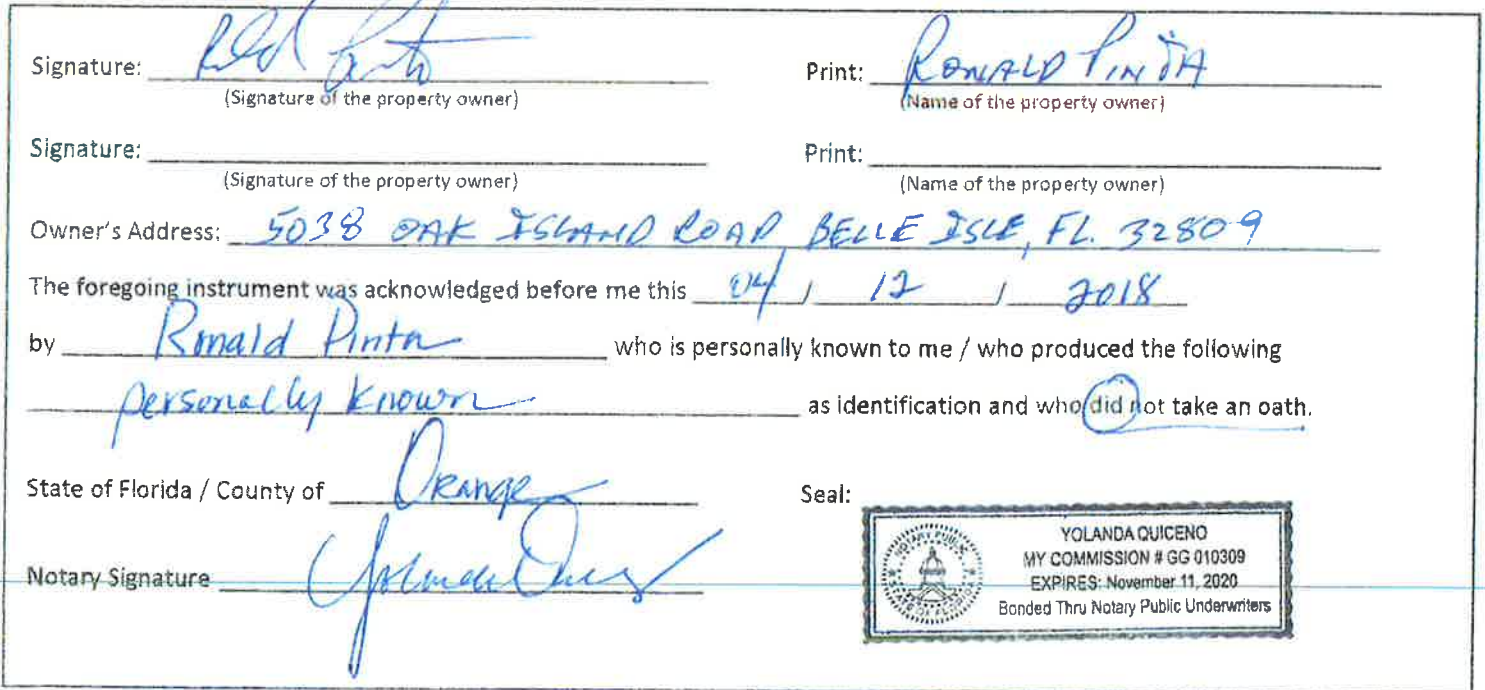 Signature: Print: RONALD PINTA
(Signature of the property owner) (Name of the property owner)
Signature: Print:
(Signature of the property owner) (Name of the property owner)
Owner's Address: 5038 OAK ISLAND ROAD BELLE ISLE, FL. 32809
The foregoing instrument was acknowledged before me this 04 / 12 / 2018
by Ronald Pinta who is personally known to me / who produced the following
personally known as identification and who did not take an oath.
State of Florida / County of Orange Seal:
Notary Signature
NOTARY PUBLIC
STATE OF FLORIDA
YOLANDA QUICENO
MY COMMISSION # GG 010309
EXPIRES: November 11, 2020
Bonded Thru Notary Public Underwriters